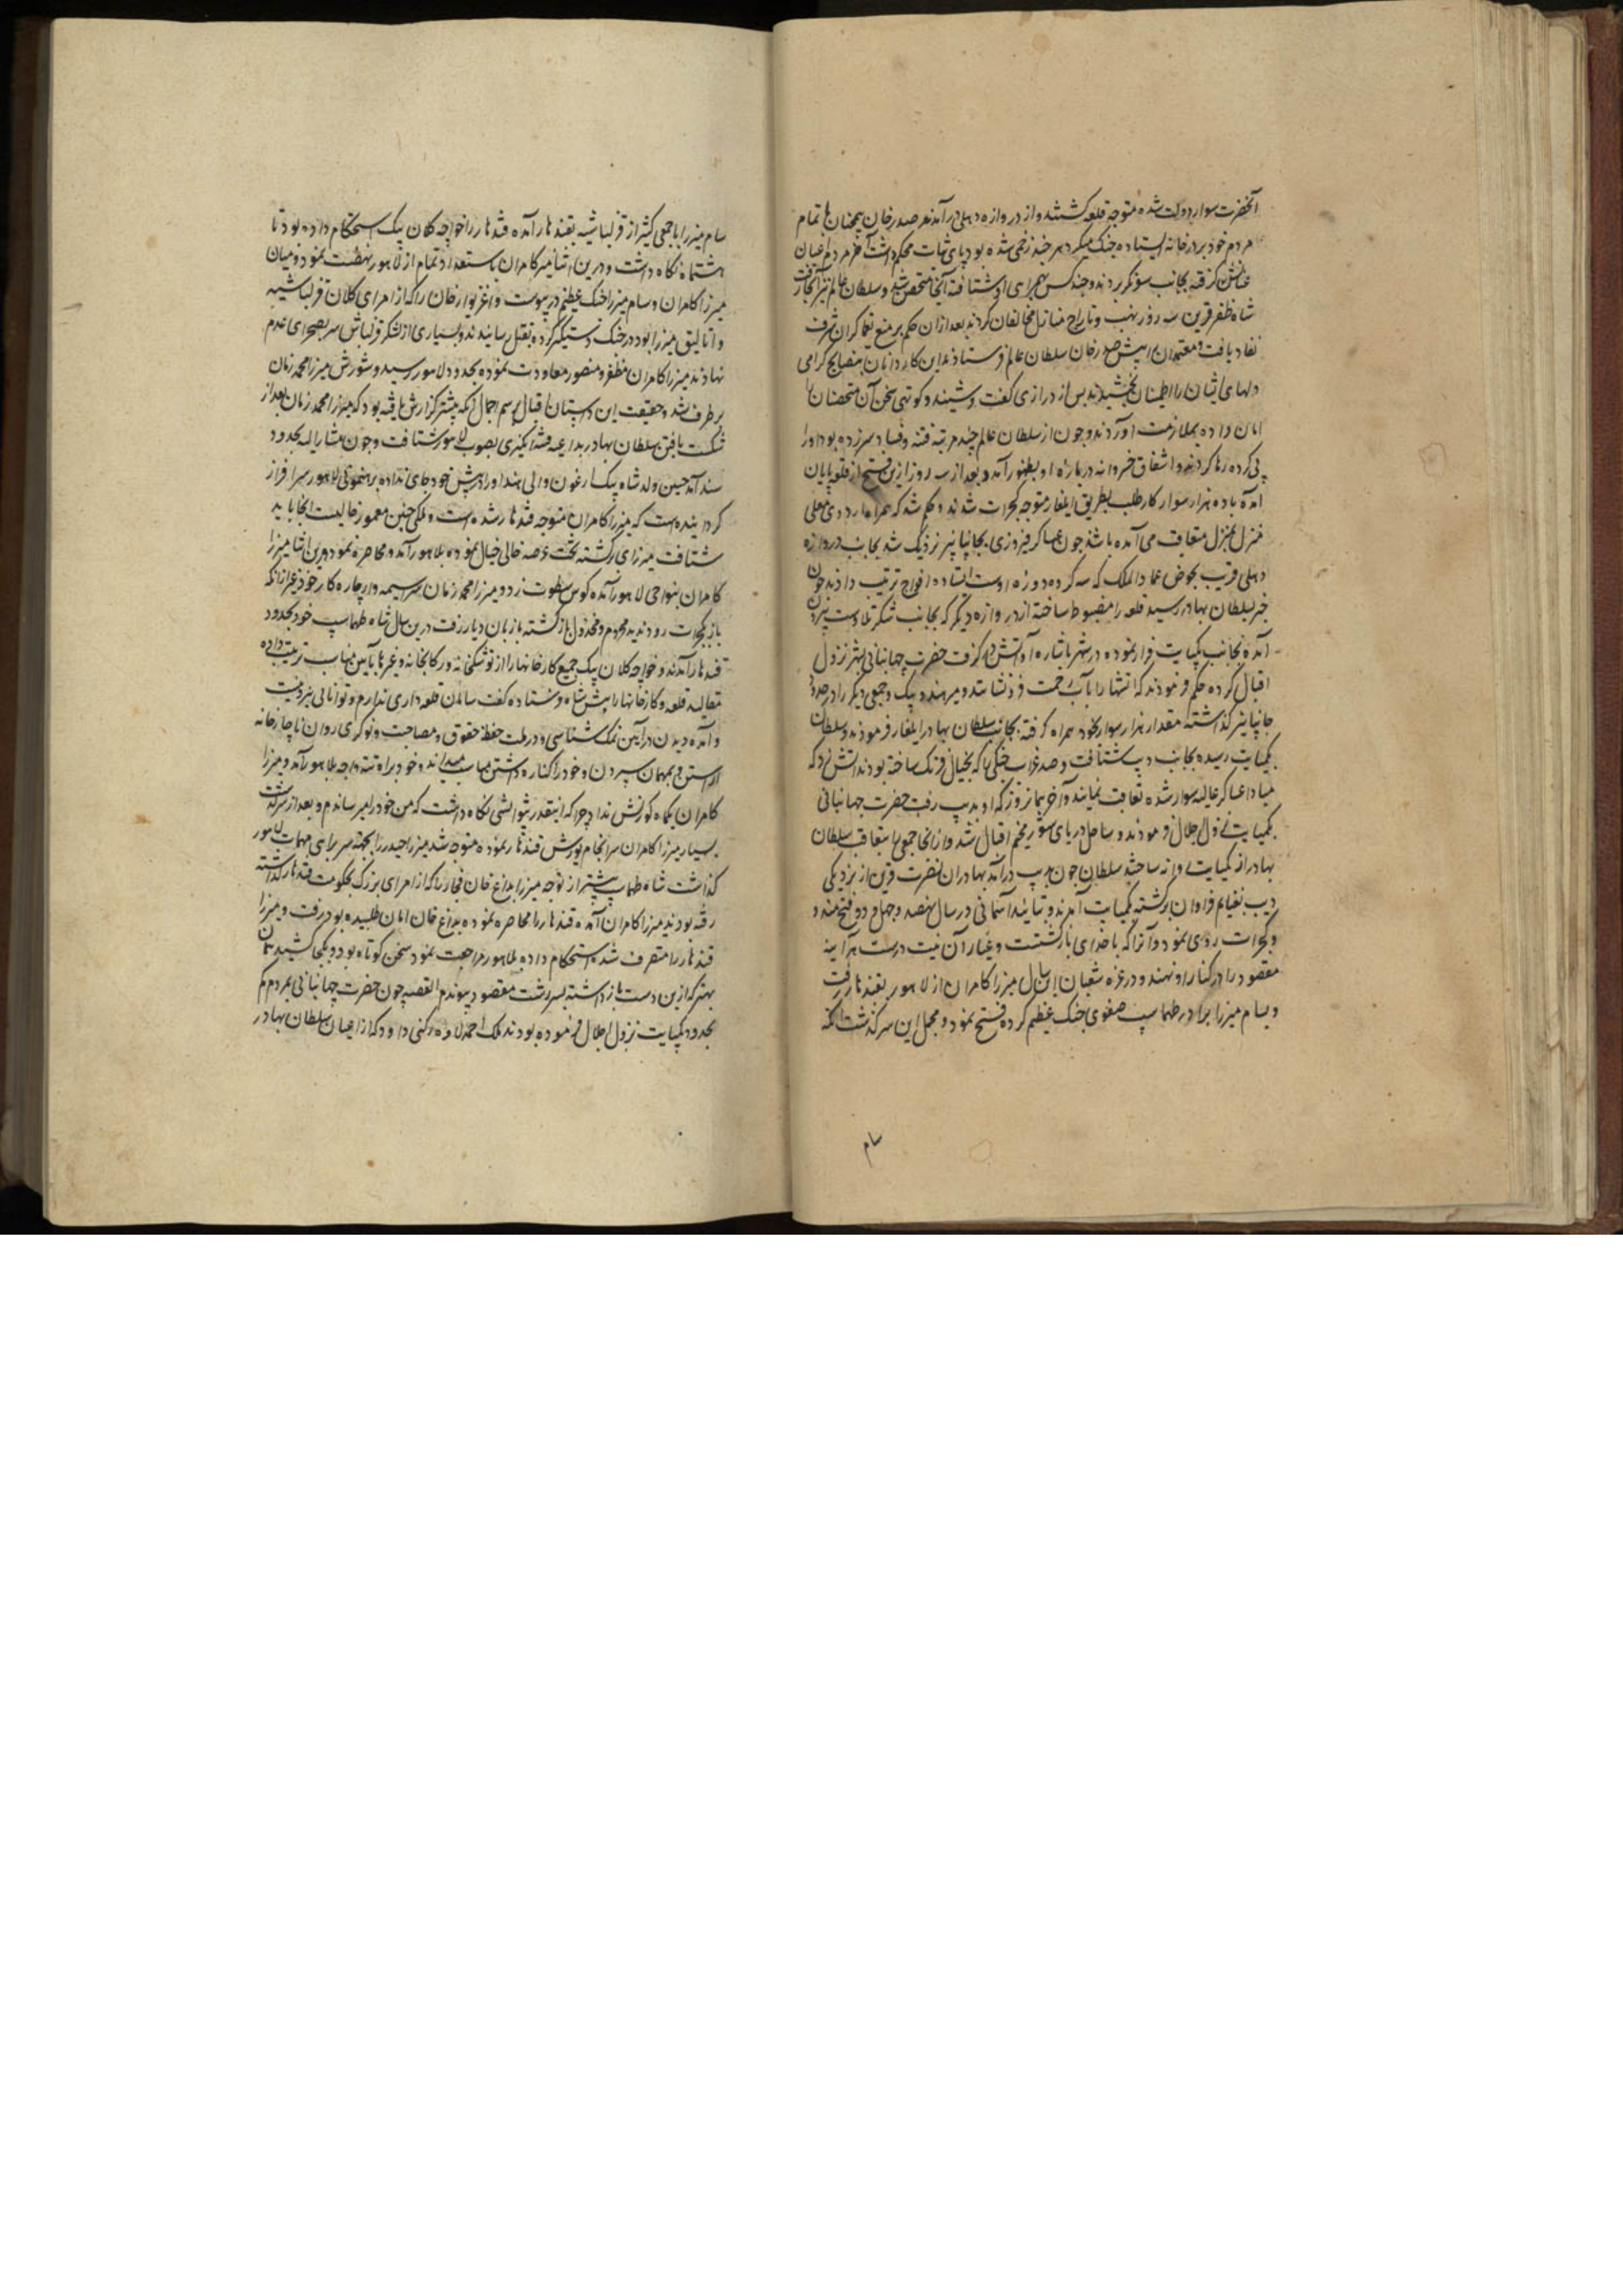 آنحضرت سوار دولت شده متوجه قلعه گشتند و از دروازه دهلی در آمدند صدر خان همچنان با تمام
مردم خود بر در خانه ایستاده جنک میکرد هر چند زخمی شده بود پای ثبات محکم داشت آخر مردم اعیان
عنانش گرفته بجانب سونکر بردند و چند کس همرای او شتافته آنجا متحصن شد و سلطان عالم نیز آنجا رفت
شاه ظفر قرین سه روز نهب و تاراج منازل مخالفان کردند بعد از ان حکم بر منع یغماگران شرف
نفاد یافت و معتمدان پیش صدر خان سلطان عالم فرستادند این کاردانان بنصایح گرامی
دلهای ایشان را اطمینان بخشیدند بس از درازی گفت و شنید و کوتهی سخن آن متحصنان را
امان داده بملازمت آوردند و چون از سلطان عالم چند مرتبه فتنه و فساد سر زده بود او را
پی کرده رها کردند و اشفاق خسروانه درباره او بظهور آمد و بعد از سه روز ازین فتح از قلعه پایان
آمده با ده هزار سوار کار طلب بطریق ایلغار متوجه گجرات شدند و حکم شد که همراه اردوی معلی
منزل بمنزل متعاقب می آمده باشد چون عساکر فیروزی بجانپانیر نزدیک شد بجانب دروازه
دهلی قریب بحوض عماد الملک که سه کروه دوره اوست ایستاده افواج ترتیب دادند چون
خبر بسلطان بهادر رسید قلعه را مضبوط ساخته از دروازه دیکر که بجانب شکر تلاوست بیرون
آمده بجانب کمپایت فرار نموده در شهر باشاره او آتش در گرفت حضرت جهانبانی بشهر نزول
اقبال کرده حکم فرمودند که آتشها را بآب رحمت فرو نشاندند و میر هندو بیک و جمعی دیکر را در حدود
جانپانیر گذاشته مقدار هزار سوار بخود همراه گرفته بجانب سلطان بهادر ایلغار فرمودند و سلطان
بکمپایت رسیده بجانب دیب شتافت و صد غراب جنکی را که بخیال فرنک ساخته بودند آتش زد که
مبادا عساکر عالیه سوار شده تعاقب نمایند و آخر همان روز که او بدیب رفت حضرت جهانبانی
بکمپایت نزول جلال فرمودند و ساحل دریای شور مخیم اقبال شد و از انجا جمعی را بتعاقب سلطان
بهادر از کمپایت روانه ساختند سلطان چون بدیب در آمد بهادران نصرت قرین از نزدیکی
دیب بغنایم فراوان برگشته بکمپایت آمدند و بتائید آسمانی در سال نهصد و چهل و دو فتح مندو
و گجرات روی نمود و آنرا که با خدای بازگشتست و غبار آن نیت درست هر آینه
مقصود را در کنار او نهند و در غره شعبان این سال میرزا کامران از لاهور بقندهار رفت
و بسام میرزا برادر طهماسب صفوی جنک عظیم کرده فتح نمود و مجمل این سرگذشت آنکه
سام
سام میرزا با جمعی کثیر از قزلباشیه بقندهار آمده قندهار را خواجه کلان بیک استحکام داده بود تا
هشتماه نکاه داشت و درین اثنا میرزا کامران باستعداد تمام از لاهور نهضت نمود و میان
میرزا کامران و سام میرزا جنک عظیم در پیوست و اغزیوار خان را که از امرای کلان قزلباشیه
و اتالیق میرزا بود در جنک دستیکر کرده بقتل رسانیدند و بسیاری از لشکر قزلباش سر بصحرای عدم
نهادند میرزا کامران مظفر و منصور معاودت نموده بحدود لاهور رسید و شورش میرزا محمد زمان
بر طرف شد و حقیقت این داستان اقبال برسم اجمال آنکه پیشتر گزارش یافته بود که میرزا محمد زمان بعد از
شکست یافتن سلطان بهادر بداعیه فتنه انکیزی بصوب لاهور شتافت و چون مشارالیه بحدود
سند آمد حسین ولد شاه بیک ارغون والی سند او را پیش خود جای نداده برهنمونی لاهور سرافراز
گردانیده است که میرزا کامران متوجه قندهار شده است و ملکی چنین معمور خالیست انجا باید
شتافت میرزای برگشته بخت عرصه خالی خیال نموده بلاهور آمد و محاصره نمود درین اثنا میرزا
کامران بنواحی لاهور آمده کوس سطوت زد و میرزا محمد زمان سراسیمه وار چاره کار خود غیر از آنکه
باز بگجرات رود ندید محروم و مخذول بازگشته باز بان دیار رفت درین سال شاه طهماسب خود بحدود
قندهار آمدند و خواجه کلان بیک جمیع کارخانها را از توشکخانه و رکابخانه و غیرها بآیین مناسب ترتیب داده
مقالید قلعه و کارخانها را پیش شاه فرستاده گفت سامان قلعه داری ندارم و توانائی نبرد نیست
و آمده دیدن در آیین نمک شناسی و در ملت حفظ حقوق و مصاحبت و نوکری روان نا چار خانه
آراستن و بمهمان سپردن و خود را کناره داشتن مناسب میداند و خود براه تته و اچه بلاهور آمد و میرزا
کامران یکماه کورنش نداد چرا که اینقدر نتوانستی نکاه داشت که من خود را میرساندم و بعد از سرگذشت
بسیار میرزا کامران سرانجام یورش قندهار نموده متوجه شد میرزا حیدر را بجهت سربراهی مهمات لاهور
گذاشت شاه طهماسب پیشتر از توجه میرزا بداغ خان قجار را که از امرای بزرک بحکومت قندهار گذاشته
رفته بودند میرزا کامران آمده قندهار را محاصره نموده بداغ خان امان طلبیده بود رفت و میرزا
قندهار را متصرف شده استحکام داده بلاهور مراجعت نمود سخن کوتاه بود و بکجا کشید همان
بهتر که ازین دست باز داشته بسررشته مقصود پیوندم القصه چون حضرت جهانبانی بمردم کم
بحدود کمپایت نزول اجلال فرموده بودند ملک احمد لاد و رکنی داود که از اعیان سلطان بهادر